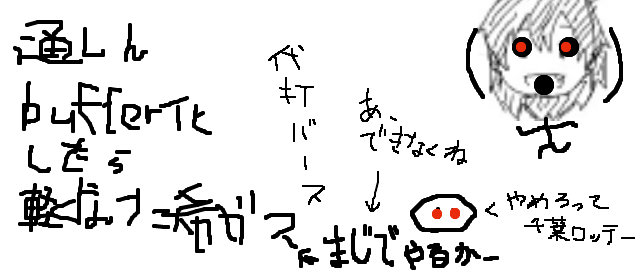 通しん
buffer化
したら
軽くなった
希ガス
代打バース
あ、
できなくね
まじでやるかー
やめろって
千葉ロッテー